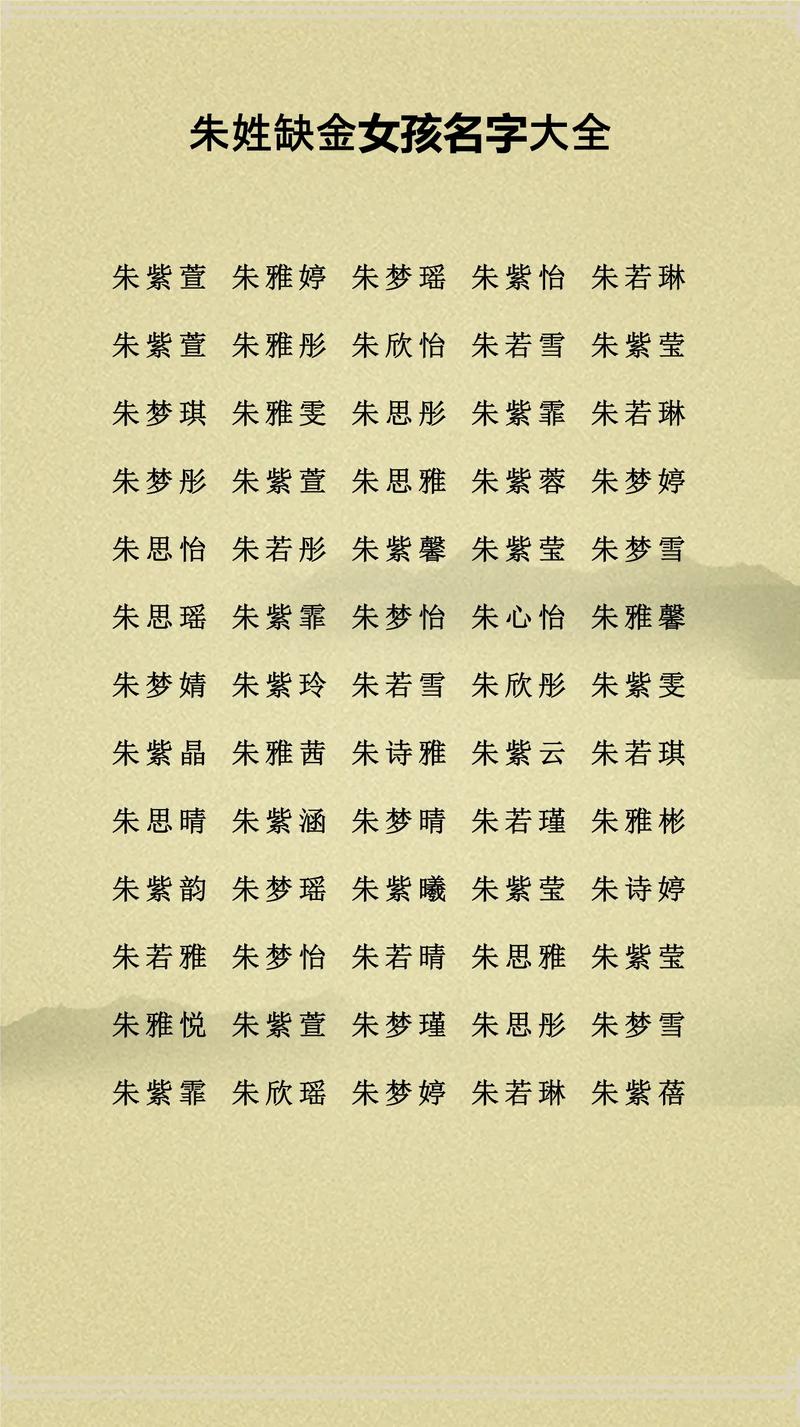 朱姓缺金女孩名字大全
朱紫萱 朱雅婷 朱梦瑶 朱紫怡 朱若琳
朱紫萱 朱雅彤 朱欣怡 朱若雪 朱紫莹
朱梦琪 朱雅雯 朱思彤 朱紫霏 朱若琳
朱梦彤 朱紫萱 朱思雅 朱紫蓉 朱梦婷
朱思怡 朱若彤 朱紫馨 朱紫莹 朱梦雪
朱思瑶 朱紫霏 朱梦怡 朱心怡 朱雅馨
朱梦婧 朱紫玲 朱若雪 朱欣彤 朱紫雯
朱紫晶 朱雅茜 朱诗雅 朱紫云 朱若琪
朱思晴 朱紫涵 朱梦晴 朱若瑾 朱雅彬
朱紫韵 朱梦瑶 朱紫曦 朱紫莹 朱诗婷
朱若雅 朱梦怡 朱若晴 朱思雅 朱紫莹
朱雅悦 朱紫萱 朱梦瑾 朱思彤 朱梦雪
朱紫霏 朱欣瑶 朱梦婷 朱若琳 朱紫蓓